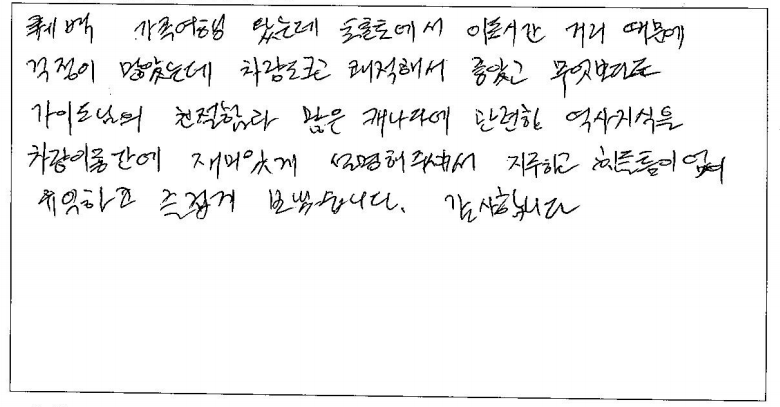 퀘벡 가족여행 왔는데 토론토에서 이동시간 거리 때문에
걱정이 많았는데 차량도크고 쾌적해서 좋았고 무엇보다도
가이드님의 친절함과 많은 캐나다에 관련한 역사지식을
차량이동간에 재미있게 설명해주셔서 지루하고 힘든틈이 없이
유익하고 즐겁게 보냈습니다. 감사합니다